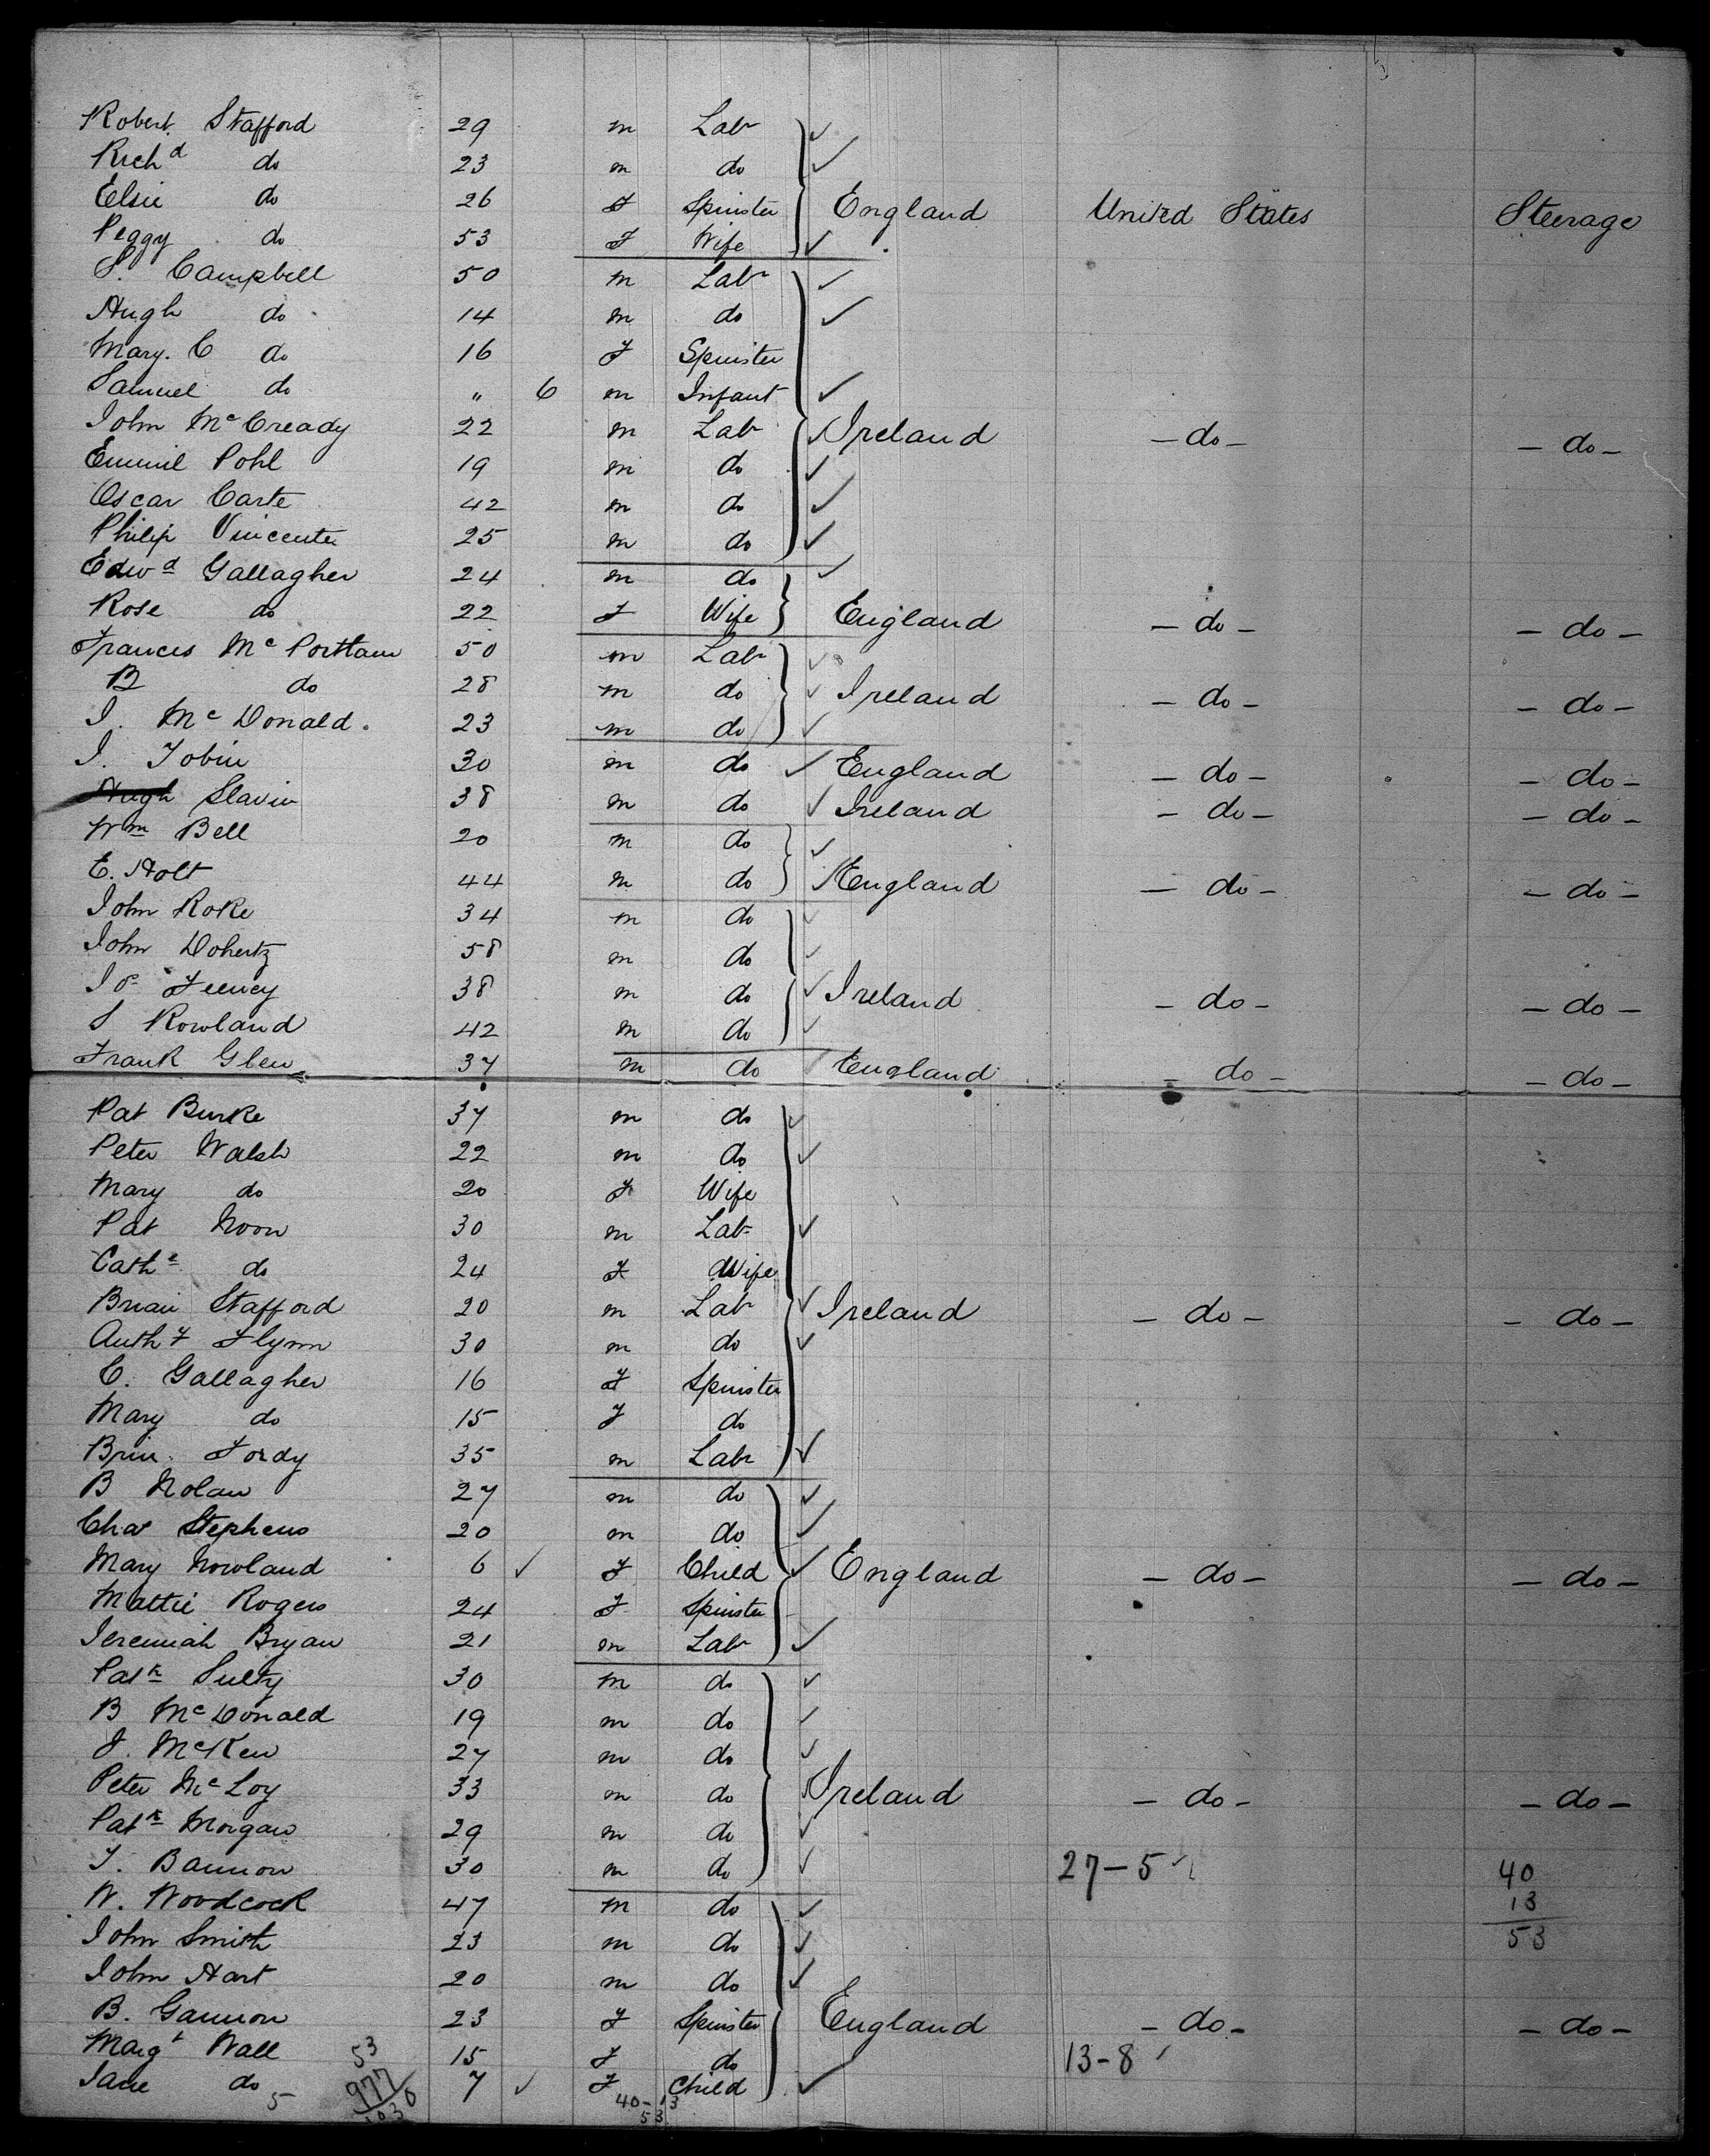 Robert Stafford 29 m Labr
Richd do 23 m do
Elsie do 26 F Spinster England United States Steerage
Peggy do 53 F Wife
S. Campbell 50 m Labr
Hugh do 14 m do
Mary. C do 16 F Spinster
Samuel do " 6 m Infant
John McCready 22 m Labr Ireland - do - - do -
Emmil Pohl 19 m do
Oscar Carte 42 m do
Philip Vincenter 25 m do
Edwd Gallagher 24 m do
Rose do 22 F Wife England - do - - do -
Frances Mc Porttam 50 m Labr
B do 28 m do Ireland - do - - do -
J. McDonald. 23 m do
J. Tobin 30 m do England - do - - do -
Hugh Slavin 38 m do Ireland - do - - do -
Wm Bell 20 m do
E. Holt 44 m do England - do - - do -
John Roke 34 m do
John Dohertz 58 m do
Jos Feeney 38 m do Ireland - do - - do -
S Rowland 42 m do
Frank Glen 37 m do England - do - - do -
Pat Burke 37 m do
Peter Walsh 22 m do
Mary do 20 F Wife
Pat Noon 30 m Labr
Cathe do 24 F Wife
Brian Stafford 20 m Labr Ireland - do - - do -
Anthy Flynn 30 m do
C. Gallagher 16 F Spinster
Mary do 15 F do
Brin. Fordy 35 m Labr
B Nolan 27 m do
Chas Stephens 20 m do
Mary Nowland 6 ✓ F Child England - do - - do -
Mattie Rogers 24 F Spinster
Jeremiah Bryan 21 m Labr
Patk Sulty 30 m do
B McDonald 19 m do
J. McKew 27 m do
Peter McLoy 33 m do Ireland - do - - do -
Patk Morgan 29 m do
T. Bannon 30 m do 27-5 40
W. Woodcock 47 m do 13
John Smith 23 m do 53
John Hart 20 m do
B. Gannon 23 F Spinster England - do - - do -
Margt Wall 53 15 F do 13-8
Jane do 5 977 7 ✓ F Child
1030 40-13
53